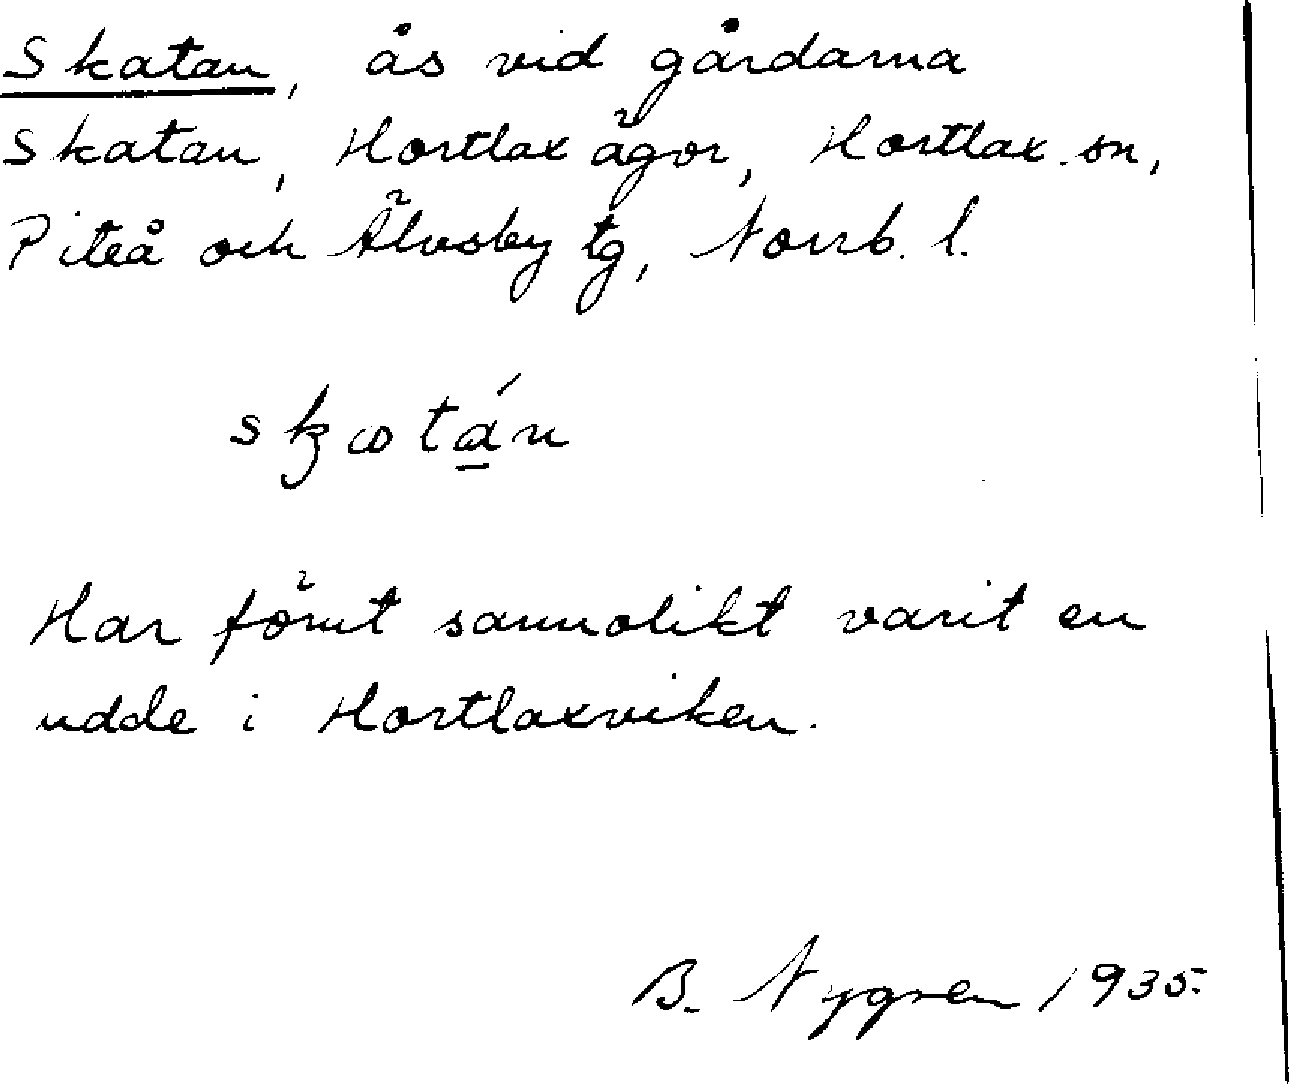 Skatan, ås vid gårdarna
Skatan, Hortlax ägor, Hortlax sn,
Piteå och Älvsby tg, Norrb. l.
Har förut sannolikt varit en
udde i Hortlaxviken.
B. Nygren 1935.